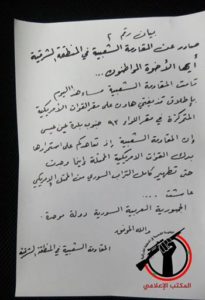 بيان رقم ٢
صادر عن المقاومة الشعبية في المنطقة الشرقية
أيها الأخوة المواطنون...
قامت المقاومة الشعبية مساء هذا اليوم
بإطلاق قذيفتي هاون على مقر القوات الأمريكية
المتمركزة في مقر اللواء ٩٣ جنوب بلدة عين عيسى
وإن المقاومة الشعبية إذ تعاهدكم على استمرارها
بدك القوات الأمريكية المحتلة أينما وجدت
حتى تطهير كامل التراب السوري من المحتل الأمريكي
عاشت ...
الجمهورية العربية السورية دولة موحدة.
والله الموفق
المقاومة الشعبية في المنطقة الشرقية
المكتب الإعلامي